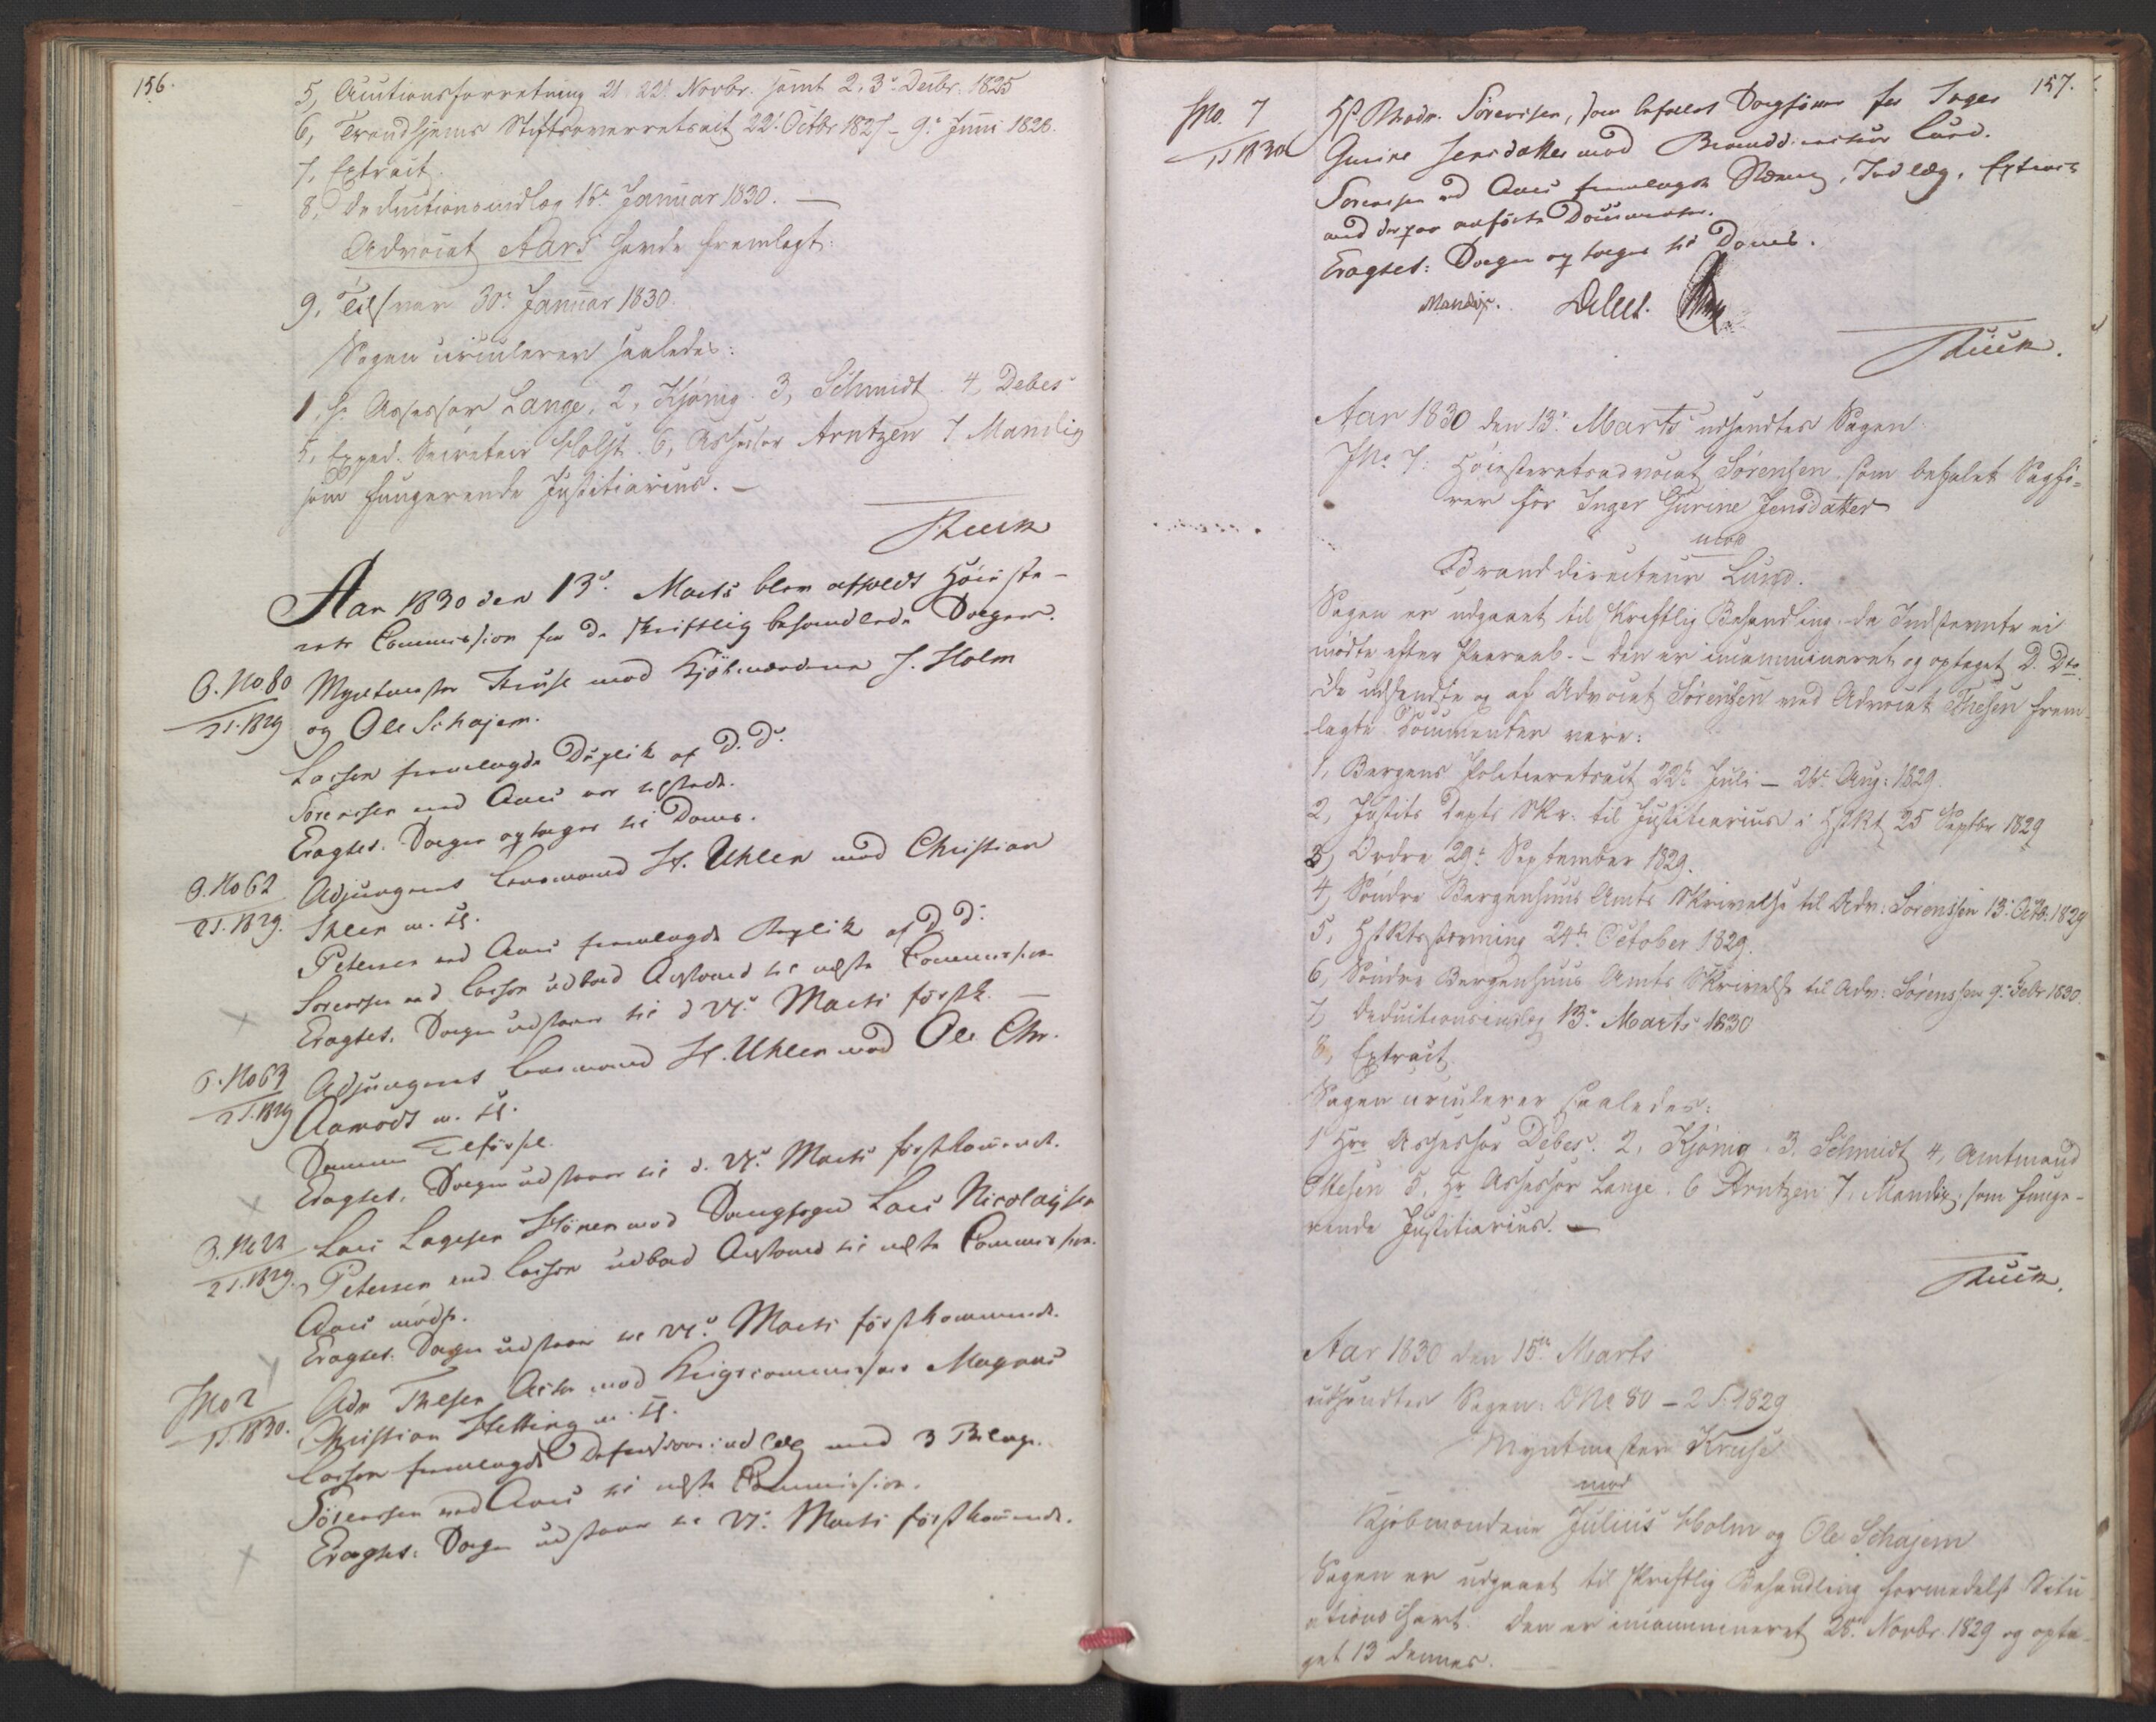 156.
5, Auctionsforretning 21 22 Novbr. samt 2, 3 Decbr. 1825
6, Trondhjems Stiftsoverretsact 22 Octbr 1827 – 9 Juni 1828.
7, Extract.
8, Deductionsindlæg 16 Januar 1830. —
Advocat Aars havde fremlagt:
9, Tilsvar 30 Januar 1830.
Sagen circulerer saaledes:
1, Hr Assessor Lange, 2, Kjønig. 3, Schmidt. 4, Debes
5, Exped. Secretair Holst. 6, Assessor Arntzen 7 Mandix
som fungerende Justitiarius. —
Aar 1830 den 13 Marts blev afholdt Høieste-
rets Commission for de skriftlig behandlede Sager.
O. No 80
2 S. 1829
Myntmester Kruse mod Kjøbmændene J. Holm
og Ole Schajem.
Lasson fremlagde Duplik af D. D.
Sørenssen ved Aars var tilstede.
Eragtet. Sagen optages til Doms.
O. No 62
2 S. 1829.
Adjungeret Lensmand H. Uhlen mod Christian
Ihlen m. fl.
Petersen ved Aars fremlagde Replik af D D.
Sørenssen ved Lasson udbad Anstand til næste Commission
Eragtet. Sagen udstaaer til d 27 Marts førstk. —
O. No 63
2 S. 1829
Adjungeret Lensmand H. Uhlen mod Ole Chr.
Aamodt m. fl.
Samme Tilførsel.
Eragtet. Sagen udstaaer til d. 27 Marts førstkommende.
O. No 22
2 S. 1829.
Lars Larsen mod Lars Nicolaysen
Petersen ved Lasson udbad Anstand til næste Commission.
Aars mødte.
Eragtet: Sagen udstaaer til 27 Marts førstkommende.
J No 2
1 S. 1830.
Adv Thesen Actor mod Krigscommissair Magnus
Christian Hetting m. fl.
Lasson fremlagde Defensionsindlæg med 3 Bilage.
Sørenssen ved Aars til næste Commission.
Eragtet: Sagen udstaaer til 27 Marts førstkommende.
157.
J No. 7
1 S 1830
Sørenssen, som befalet Sagfører for Inger
Gurine Jensdatter mod Branddirecteur Lund.
Sørenssen ved Aars fremlagde Stævning, Indlæg, Extract
med derpaa anførte Documenter.
Eragtet: Sagen optages til Doms.
Mandix. Debes.
Aar 1830 den 13 Marts udsendtes Sagen
J No 7: Høiesteretsadvocat Sørensen, som befalet Sagfø-
rer for Inger Gurine Jensdatter
mod
Branddirecteur Lund.
Sagen er udgaaet til skriftlig Behandling, da Indstevnte ei
mødte efter Paaraab. – den er incammineret og optaget D. Dto.
De udsendte og af Advocat Sørensen ved Advocat Thesen frem-
lagte Documenter vare:
1, Bergens Politieretsact 22 Juli – 26 Aug: 1829.
2, Justits Depts Skr: til Justitiarius i HstRt 25 Septbr 1829
3, Ordre 29 September 1829.
4, Søndre Bergenhuus Amts Skrivelse til Adv: Sørenssen 13 Octbr. 1829
5, HstRtsstævning 24 October 1829.
6, Søndre Bergenhuus Amts Skrivelse til Adv: Sørenssen 9 Febr 1830.
7, Deductionsindlæg 13 Marts 1830
8, Extract
Sagen circulerer saaledes:
1 Hrr Assessor Debes. 2, Kjønig. 3, Schmidt 4, Amtmand
Thesen 5, Hr Assessor Lange. 6 Arntzen 7, Mandix, som funge-
rende Justitiarius. —
Aar 1830 den 15 Marts
udsendtes Sagen: O No 80 – 2 S. 1829
Myntmester Kruse
mod
Kjøbmændene Julius Holm og Ole Schajem
Sagen er udgaaet til skriftlig Behandling formedelst Situ
ations Chart. Den er incammineret 28 Novbr 1829 og opta-
get 13 dennes.